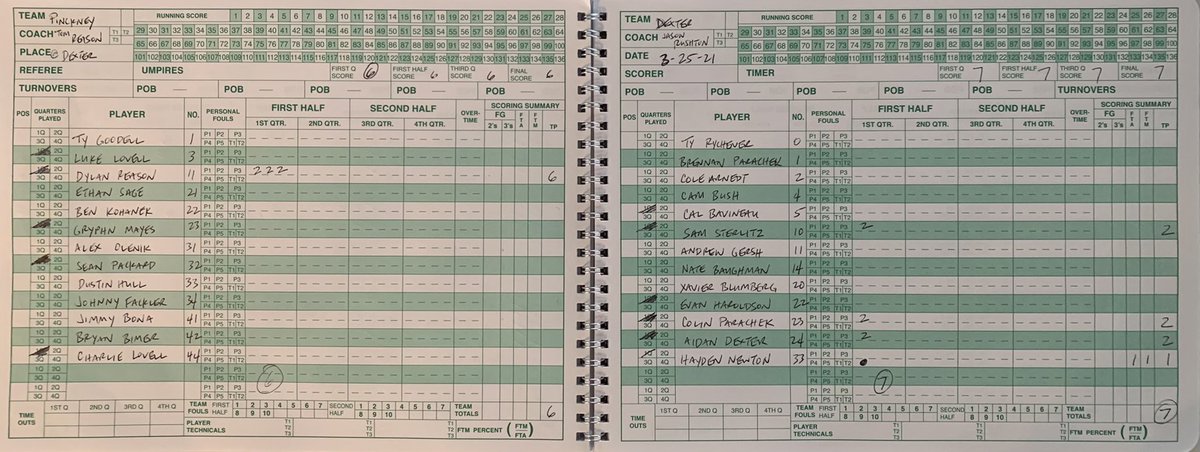 TEAM PINCKNEY RUNNING SCORE 1 2 3 4 5 6 7 8 9 10 11 12 13 14 15 16 17 18 19 20 21 22 23 24 25 26 27 28
COACH TOM REASON T1 T2 T3 29 30 31 32 33 34 35 36 37 38 39 40 41 42 43 44 45 46 47 48 49 50 51 52 53 54 55 56 57 58 59 60 61 62 63 64
65 66 67 68 69 70 71 72 73 74 75 76 77 78 79 80 81 82 83 84 85 86 87 88 89 90 91 92 93 94 95 96 97 98 99 100
PLACE @ DEXTER 101 102 103 104 105 106 107 108 109 110 111 112 113 114 115 116 117 118 119 120 121 122 123 124 125 126 127 128 129 130 131 132 133 134 135 136
REFEREE UMPIRES FIRST Q SCORE 6 FIRST HALF SCORE 6 THIRD Q SCORE 6 FINAL SCORE 6
TURNOVERS POB — POB — POB — POB — POB —
POS QUARTERS PLAYED PLAYER NO. PERSONAL FOULS FIRST HALF SECOND HALF OVER-TIME SCORING SUMMARY
1ST QTR. 2ND QTR. 3RD QTR. 4TH QTR. FG 2's 3's FTA FTM TP
1Q 2Q 3Q 4Q TY GOODELL 1 P1 P2 P3 P4 P5 T1 T2
1Q 2Q 3Q 4Q LUKE LOVELL 3 P1 P2 P3 P4 P5 T1 T2
1Q 2Q 3Q 4Q DYLAN REASON 11 P1 P2 P3 P4 P5 T1 T2 2 2 2 6
1Q 2Q 3Q 4Q ETHAN SAGE 21 P1 P2 P3 P4 P5 T1 T2
1Q 2Q 3Q 4Q BEN KOHANEK 22 P1 P2 P3 P4 P5 T1 T2
1Q 2Q 3Q 4Q GRYPHN MAYES 23 P1 P2 P3 P4 P5 T1 T2
1Q 2Q 3Q 4Q ALEX OLENIK 31 P1 P2 P3 P4 P5 T1 T2
1Q 2Q 3Q 4Q SEAN PACKARD 32 P1 P2 P3 P4 P5 T1 T2
1Q 2Q 3Q 4Q DUSTIN HULL 33 P1 P2 P3 P4 P5 T1 T2
1Q 2Q 3Q 4Q JOHNNY FACKLER 34 P1 P2 P3 P4 P5 T1 T2
1Q 2Q 3Q 4Q JIMMY BONA 41 P1 P2 P3 P4 P5 T1 T2
1Q 2Q 3Q 4Q BRYAN BIMER 42 P1 P2 P3 P4 P5 T1 T2
1Q 2Q 3Q 4Q CHARLIE LOVELL 44 P1 P2 P3 P4 P5 T1 T2
1Q 2Q 3Q 4Q P1 P2 P3 P4 P5 T1 T2 6
1Q 2Q 3Q 4Q P1 P2 P3 P4 P5 T1 T2
TIME OUTS 1ST Q 2ND Q 3RD Q 4TH Q TEAM FOULS FIRST HALF 1 2 3 4 5 6 7 8 9 10 SECOND HALF 1 2 3 4 5 6 7 8 9 10 TEAM TOTALS 6
PLAYER TECHNICALS T1 T2 T3 T1 T2 T3 FTM PERCENT (FTM/FTA)
TEAM DEXTER RUNNING SCORE 1 2 3 4 5 6 7 8 9 10 11 12 13 14 15 16 17 18 19 20 21 22 23 24 25 26 27 28
COACH JASON RUSHTON T1 T2 T3 29 30 31 32 33 34 35 36 37 38 39 40 41 42 43 44 45 46 47 48 49 50 51 52 53 54 55 56 57 58 59 60 61 62 63 64
65 66 67 68 69 70 71 72 73 74 75 76 77 78 79 80 81 82 83 84 85 86 87 88 89 90 91 92 93 94 95 96 97 98 99 100
DATE 3-25-21 101 102 103 104 105 106 107 108 109 110 111 112 113 114 115 116 117 118 119 120 121 122 123 124 125 126 127 128 129 130 131 132 133 134 135 136
SCORER TIMER FIRST Q SCORE 7 FIRST HALF SCORE 7 THIRD Q SCORE 7 FINAL SCORE 7
POB — POB — POB — POB — POB — TURNOVERS
POS QUARTERS PLAYED PLAYER NO. PERSONAL FOULS FIRST HALF SECOND HALF OVER-TIME SCORING SUMMARY
1ST QTR. 2ND QTR. 3RD QTR. 4TH QTR. FG 2's 3's FTA FTM TP
1Q 2Q 3Q 4Q TY RYCHENER 0 P1 P2 P3 P4 P5 T1 T2
1Q 2Q 3Q 4Q BRENNAN PARACHEK 1 P1 P2 P3 P4 P5 T1 T2
1Q 2Q 3Q 4Q COLE ARNEDT 2 P1 P2 P3 P4 P5 T1 T2
1Q 2Q 3Q 4Q CAM BUSH 4 P1 P2 P3 P4 P5 T1 T2
1Q 2Q 3Q 4Q CAL BAVINEAU 5 P1 P2 P3 P4 P5 T1 T2
1Q 2Q 3Q 4Q SAM STERLITZ 10 P1 P2 P3 P4 P5 T1 T2 2 2
1Q 2Q 3Q 4Q ANDREW GERSH 11 P1 P2 P3 P4 P5 T1 T2
1Q 2Q 3Q 4Q NATE BAUGHMAN 14 P1 P2 P3 P4 P5 T1 T2
1Q 2Q 3Q 4Q XAVIER BLUMBERG 20 P1 P2 P3 P4 P5 T1 T2
1Q 2Q 3Q 4Q EVAN HAROLDSON 22 P1 P2 P3 P4 P5 T1 T2
1Q 2Q 3Q 4Q COLIN PARACHEK 23 P1 P2 P3 P4 P5 T1 T2 2 2
1Q 2Q 3Q 4Q AIDAN DEXTER 24 P1 P2 P3 P4 P5 T1 T2 2 2
1Q 2Q 3Q 4Q HAYDEN NEWTON 33 P1 P2 P3 P4 P5 T1 T2 1 1 1
1Q 2Q 3Q 4Q P1 P2 P3 P4 P5 T1 T2 7
1Q 2Q 3Q 4Q P1 P2 P3 P4 P5 T1 T2
TIME OUTS 1ST Q 2ND Q 3RD Q 4TH Q TEAM FOULS FIRST HALF 1 2 3 4 5 6 7 8 9 10 SECOND HALF 1 2 3 4 5 6 7 8 9 10 TEAM TOTALS 7
PLAYER TECHNICALS T1 T2 T3 T1 T2 T3 FTM PERCENT (FTM/FTA)